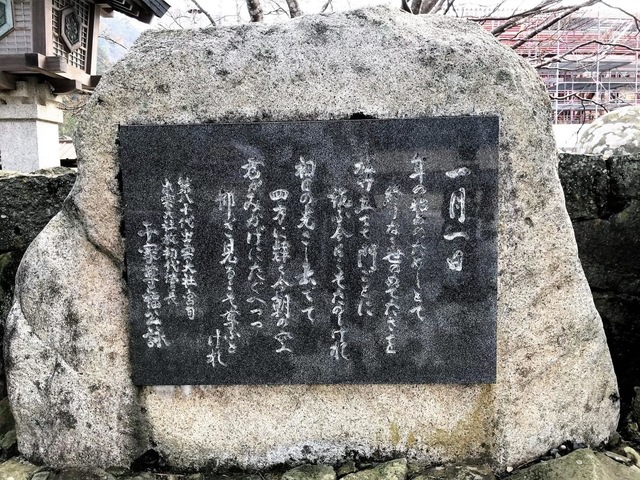 一月一日
年の始めのためしとて
終りなき世のめでたさを
松竹立てて門ごとに
祝ふ今日こそたのしけれ
初日の光さし出でて
四方に輝く今朝の空
君がみかげにたぐへつつ
仰ぎ見るこそ尊と
けれ
第八十代出雲大社宮司
出雲大社教初代管長
千家尊福公詠